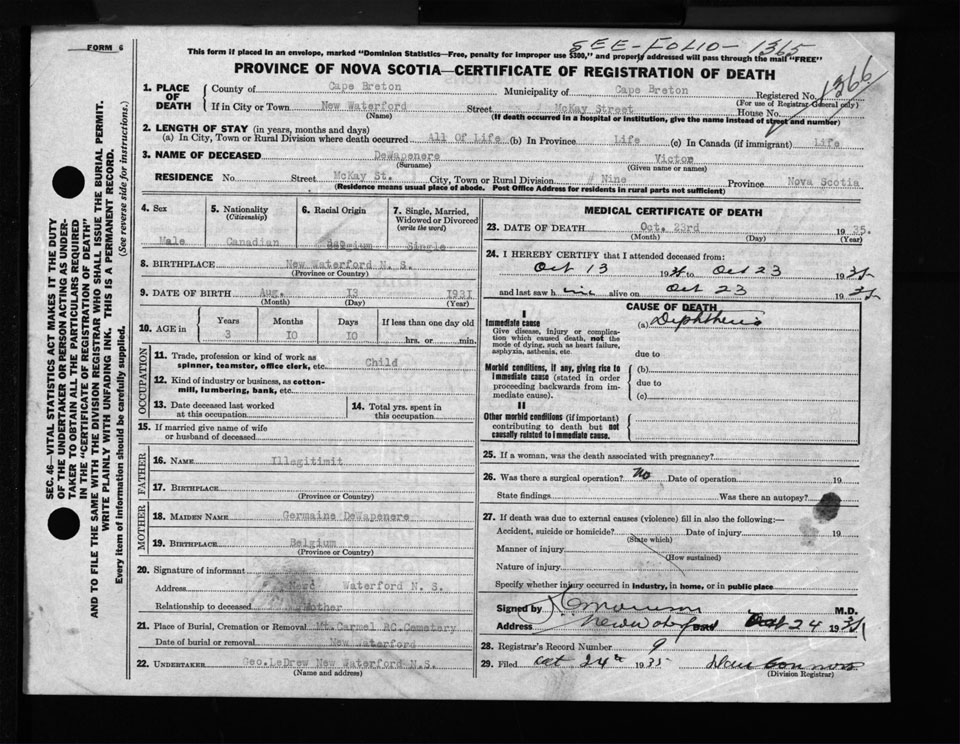 FORM 6
SEE-FOLIO-1365
This form if placed in an envelope, marked "Dominion Statistics—Free, penalty for improper use $300," and properly addressed will pass through the mail "FREE"
PROVINCE OF NOVA SCOTIA—CERTIFICATE OF REGISTRATION OF DEATH
1366
1. PLACE OF DEATH
County of Cape Breton Municipality of Cape Breton Registered No.
(For use of Registrar General only)
If in City or Town New Waterford Street McKay Street House No.
(Name) (If death occurred in a hospital or institution, give the name instead of street and number)
2. LENGTH OF STAY (in years, months and days)
(a) In City, Town or Rural Division where death occurred All Of Life (b) In Province Life (c) In Canada (if immigrant) Life
3. NAME OF DECEASED DeWapenere Victor
(Surname) (Given name or names)
RESIDENCE No. Street McKay St. City, Town or Rural Division # Nine Province Nova Scotia
(Residence means usual place of abode. Post Office Address for residents in rural parts not sufficient)
4. Sex Male
5. Nationality (Citizenship) Canadian
6. Racial Origin Belgium
7. Single, Married, Widowed or Divorced (write the word) Single
8. BIRTHPLACE New Waterford N. S.
(Province or Country)
9. DATE OF BIRTH Aug. 13 1931
(Month) (Day) (Year)
10. AGE in Years Months Days If less than one day old
3 10 10 hrs. or min.
OCCUPATION
11. Trade, profession or kind of work as spinner, teamster, office clerk, etc. Child
12. Kind of industry or business, as cotton-mill, lumbering, bank, etc.
13. Date deceased last worked at this occupation
14. Total yrs. spent in this occupation
15. If married give name of wife or husband of deceased
FATHER
16. NAME Illegitimit
17. BIRTHPLACE
(Province or Country)
MOTHER
18. MAIDEN NAME Germaine DeWapenere
19. BIRTHPLACE Belgium
(Province or Country)
20. Signature of informant
Address Waterford N. S.
Relationship to deceased Mother
21. Place of Burial, Cremation or Removal Mt. Carmel RC. Cemetery
Date of burial or removal New Waterford
22. UNDERTAKER Geo. LeDrew New Waterford N.S.
(Name and address)
MEDICAL CERTIFICATE OF DEATH
23. DATE OF DEATH Oct. 23rd 1935.
(Month) (Day) (Year)
24. I HEREBY CERTIFY that I attended deceased from:
Oct 13 1935 to Oct 23 1935
and last saw him alive on Oct 23 1935
CAUSE OF DEATH
I
Immediate cause
Give disease, injury or complication which caused death, not the mode of dying, such as heart failure, asphyxia, asthenia, etc.
(a) Diphtheria
due to
Morbid conditions, if any, giving rise to immediate cause (stated in order proceeding backwards from immediate cause).
(b)
due to
(c)
II
Other morbid conditions (if important) contributing to death but not causally related to immediate cause.
25. If a woman, was the death associated with pregnancy?
26. Was there a surgical operation? No Date of operation 19
State findings Was there an autopsy?
27. If death was due to external causes (violence) fill in also the following:—
Accident, suicide or homicide? Date of injury 19
(State which)
Manner of injury
(How sustained)
Nature of injury
Specify whether injury occurred in industry, in home, or in public place
Signed by M.D.
Address New Waterford Date Oct 24 1935
28. Registrar's Record Number 9
29. Filed Oct 24th 1935 Dan Connors
(Division Registrar)
SEC. 46—VITAL STATISTICS ACT MAKES IT THE DUTY
OF THE UNDERTAKER OR PERSON ACTING AS UNDER-
TAKER TO OBTAIN ALL THE PARTICULARS REQUIRED
IN THE "CERTIFICATE OF REGISTRATION OF DEATH"
AND TO FILE THE SAME WITH THE DIVISION REGISTRAR WHO SHALL ISSUE THE BURIAL PERMIT.
WRITE PLAINLY WITH UNFADING INK. THIS IS A PERMANENT RECORD.
Every item of information should be carefully supplied. (See reverse side for instructions.)